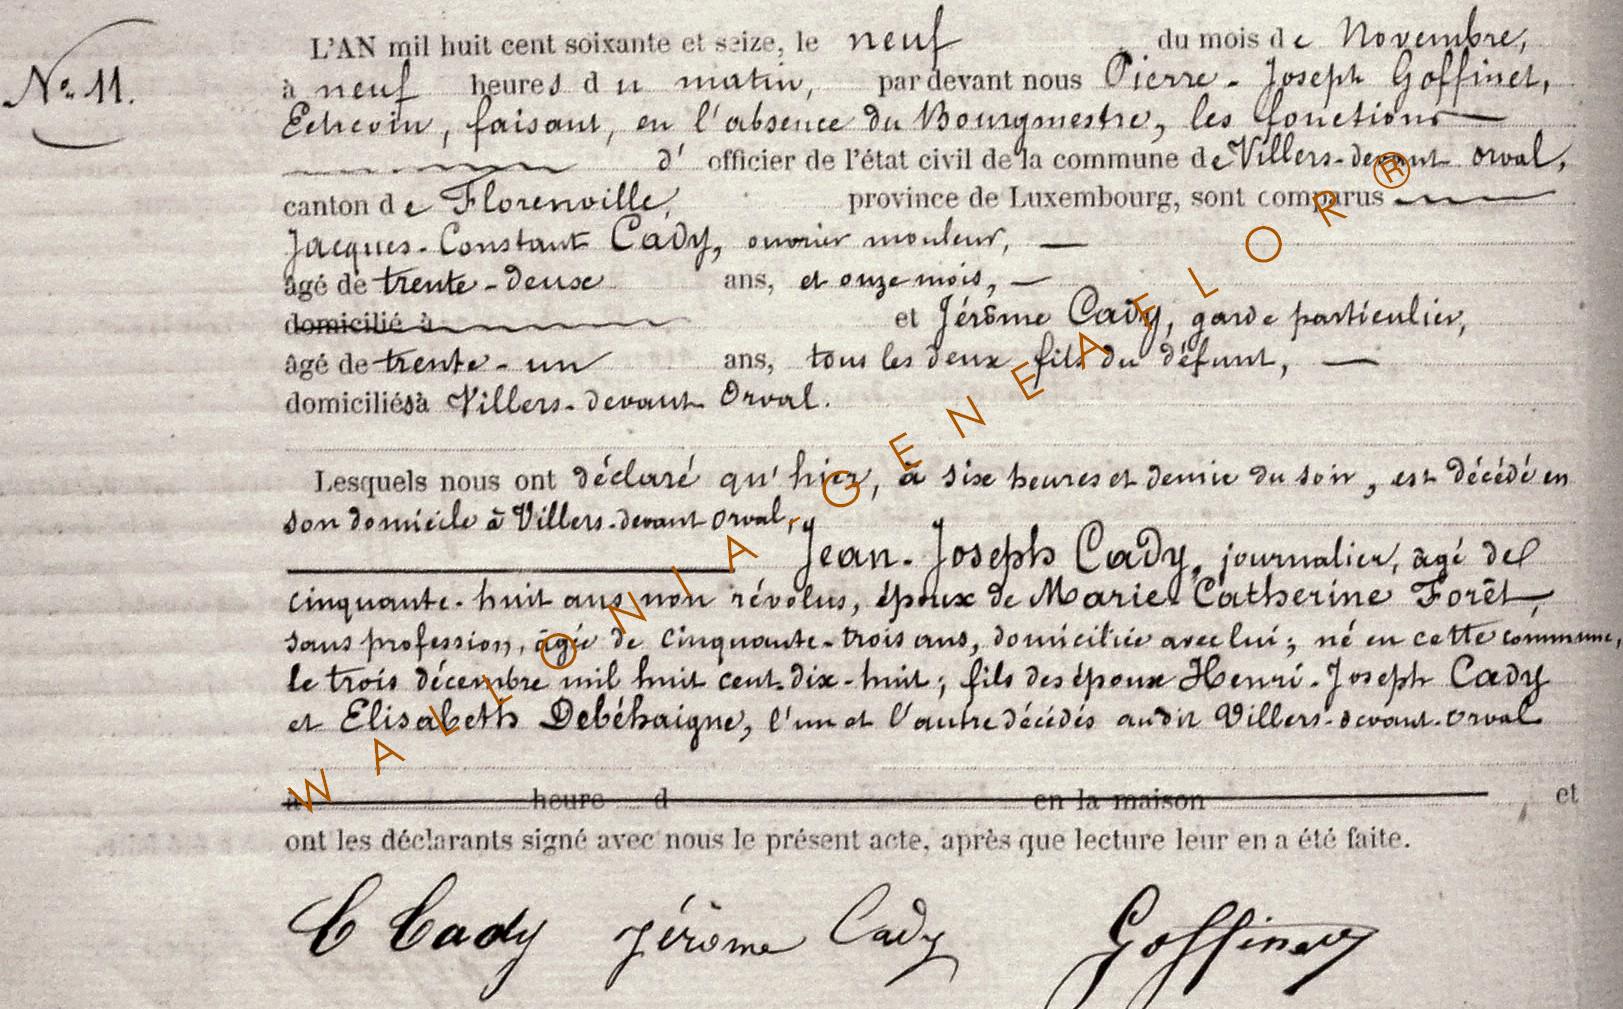 N° 11.
L'AN mil huit cent soixante et seize, le neuf du mois de Novembre,
à neuf heures du matin, par devant nous Pierre-Joseph Goffinet,
Echevin, faisant, en l'absence du Bourgmestre, les fonctions
d' officier de l'état civil de la commune de Villers-devant Orval,
canton de Florenville, province de Luxembourg, sont comparus
Jacques-Constant Cady, ouvrier mouleur,
âgé de trente-deux ans, et onze mois,
domicilié à et Jérôme Cady, garde particulier,
âgé de trente-un ans, tous les deux fils du défunt,
domiciliés à Villers-devant Orval.
Lesquels nous ont déclaré qu'hier, à six heures et demie du soir, est décédé en
son domicile à Villers-devant Orval,
Jean-Joseph Cady, journalier, âgé de
cinquante-huit ans non révolus, époux de Marie Catherine Forêt,
sans profession, âgée de cinquante-trois ans, domiciliée avec lui; né en cette commune,
le trois décembre mil huit cent dix-huit; fils des époux Henri-Joseph Cady
et Elisabeth Debéhaigne, l'un et l'autre décédés audit Villers-devant-Orval
à heure d en la maison et
ont les déclarants signé avec nous le présent acte, après que lecture leur en a été faite.
C Cady Jérôme Cady Goffinet
WALLONIA GENEAFLOR®